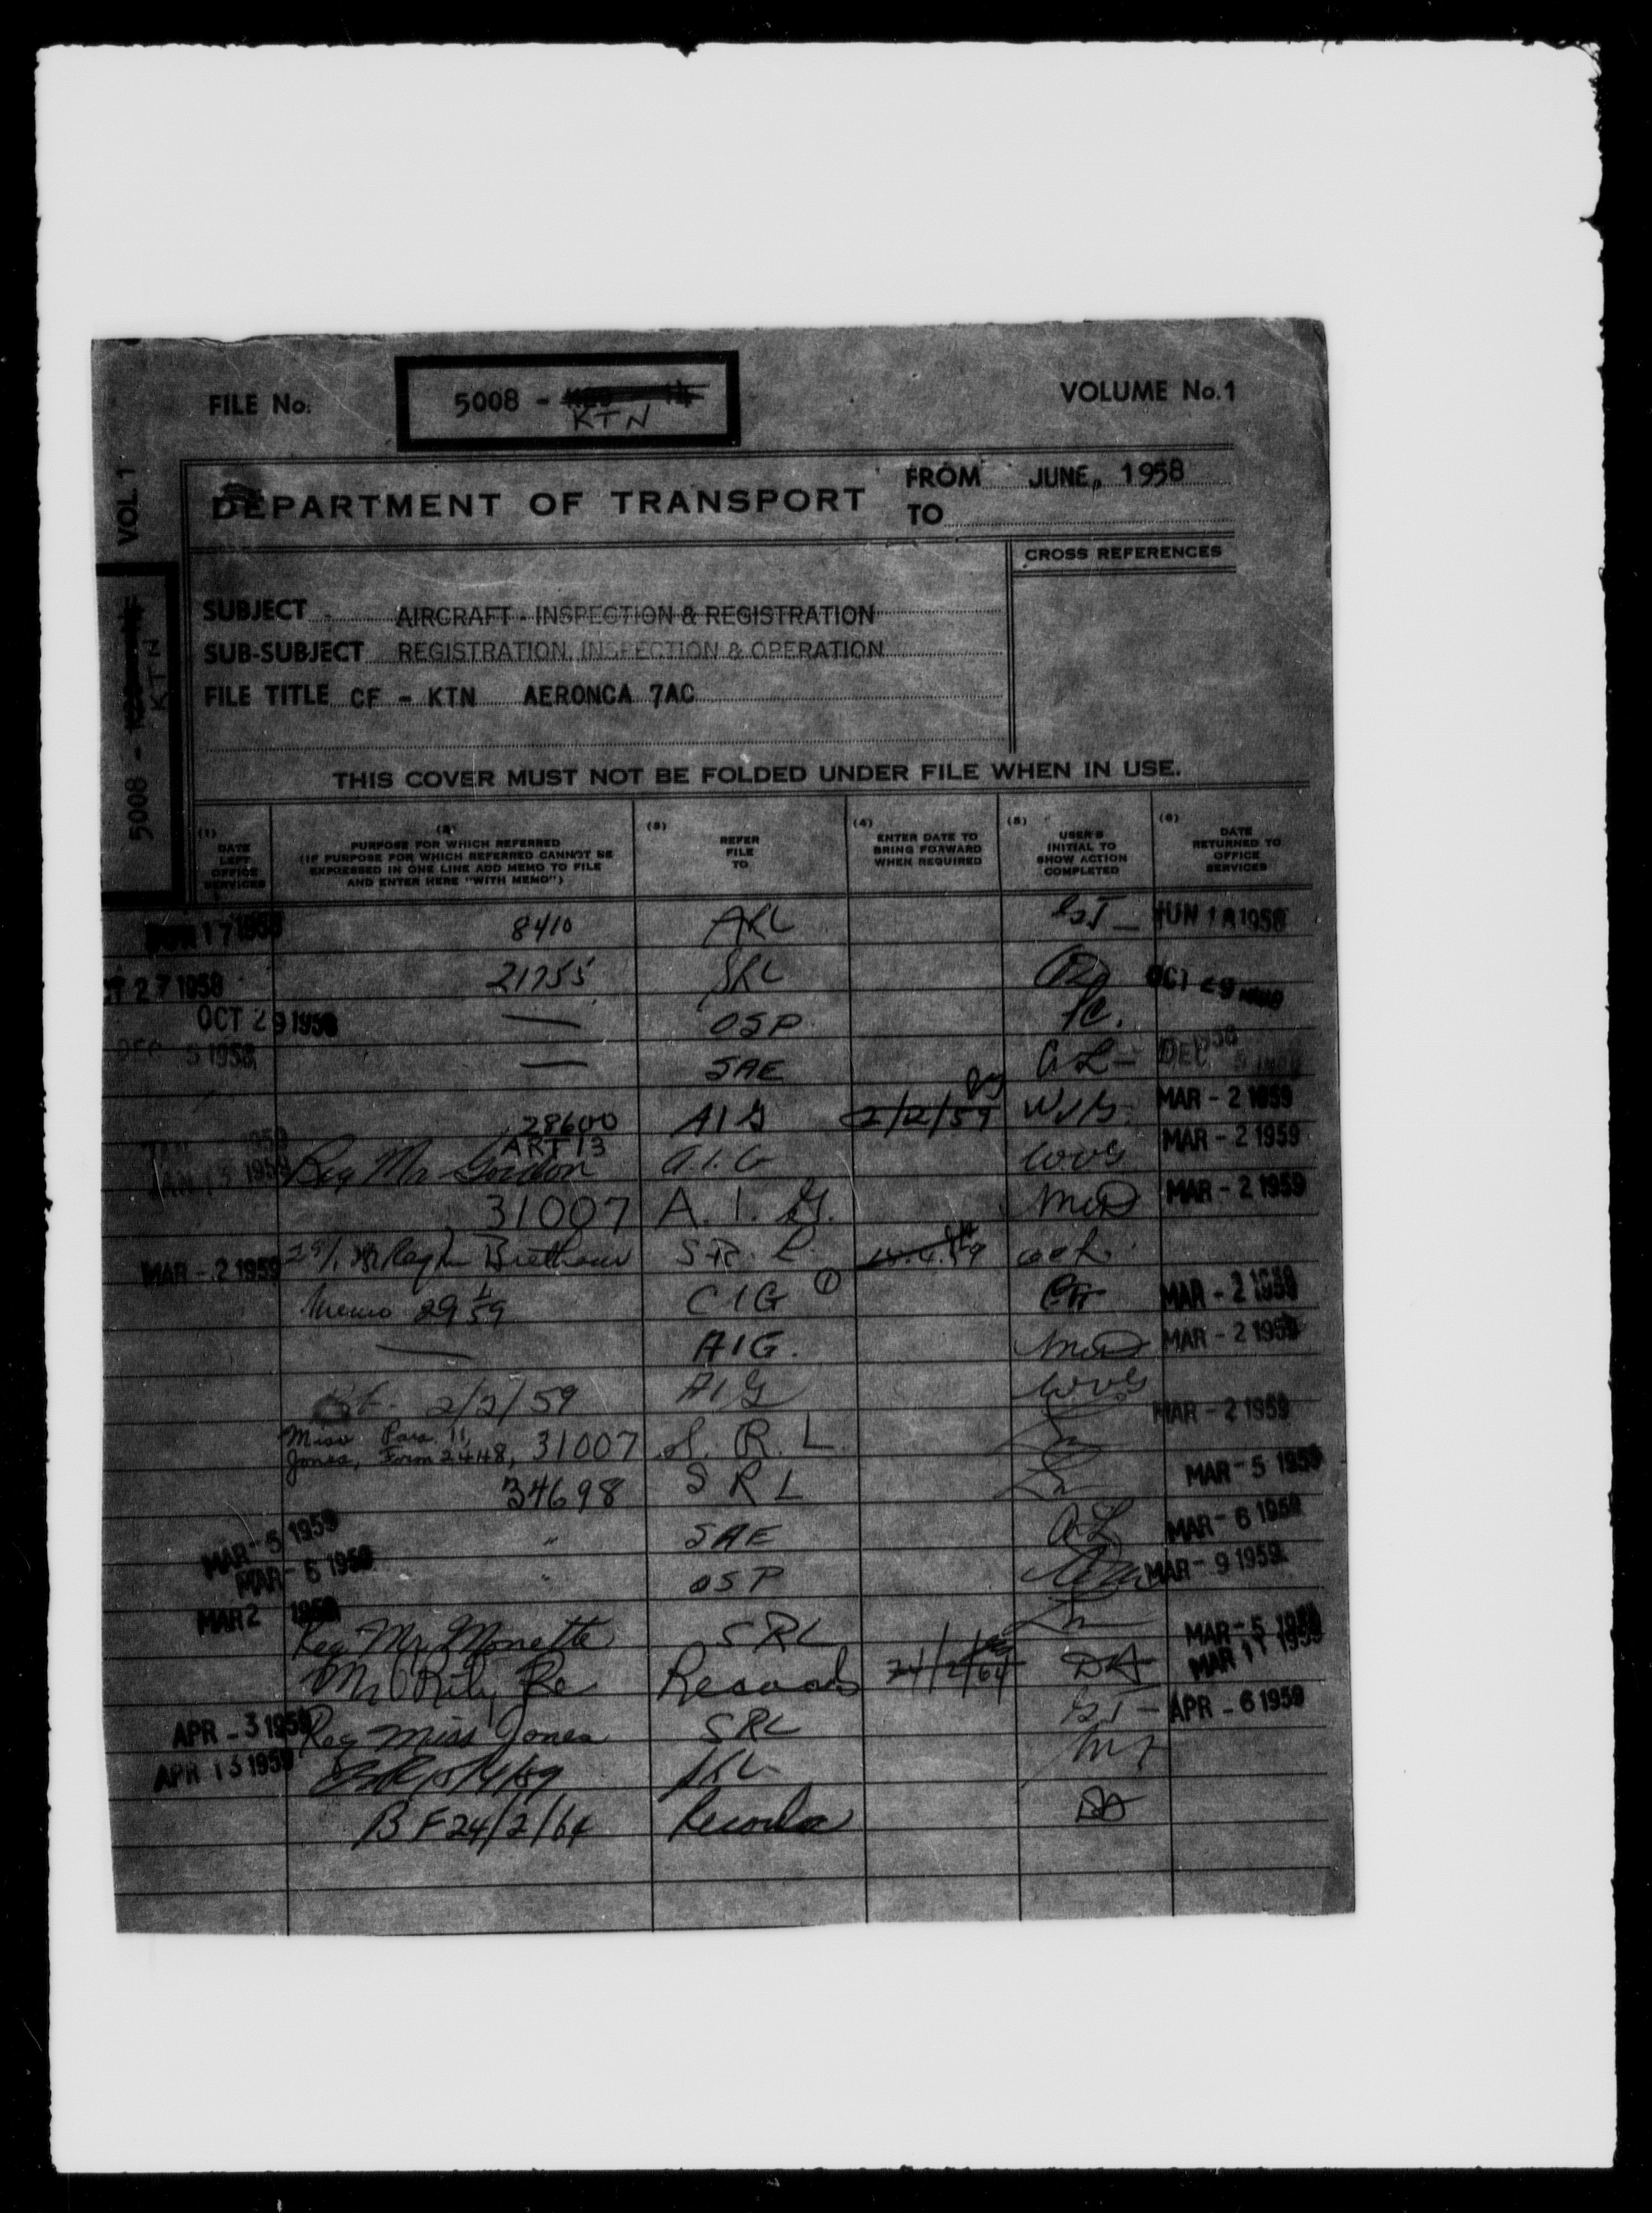 FILE No. 5008 - KTN VOLUME No.1
VOL 1
5008 - KTN
DEPARTMENT OF TRANSPORT
FROM JUNE, 1958
TO
CROSS REFERENCES
SUBJECT - AIRCRAFT - INSPECTION & REGISTRATION
SUB-SUBJECT REGISTRATION, INSPECTION & OPERATION
FILE TITLE CF - KTN AERONCA 7AC
THIS COVER MUST NOT BE FOLDED UNDER FILE WHEN IN USE.
(1) DATE LEFT OFFICE SERVICES
(2) PURPOSE FOR WHICH REFERRED (IF PURPOSE FOR WHICH REFERRED CANNOT BE EXPRESSED IN ONE LINE ADD MEMO TO FILE AND ENTER HERE "WITH MEMO")
(3) REFER FILE TO
(4) ENTER DATE TO BRING FORWARD WHEN REQUIRED
(5) USER'S INITIAL TO SHOW ACTION COMPLETED
(6) DATE RETURNED TO OFFICE SERVICES
17 1958 8410 JUN 18 1958
27 1958 21755 SRL OCT 29
OCT 29 1958 — OSP
DEC 5 1958 — SAE DEC 5
28600 AIG 2/2/59 MAR - 2 1959
ART 13
JAN 15 1959 Req Mr Gordon A.I.G MAR - 2 1959
31007 A. I. G. MAR - 2 1959
MAR - 2 1959 S.R.L.
Memo 29 1/59 CIG 1 MAR - 2 1959
— AIG. MAR - 2 1959
2/2/59 AIG
Miss Jones, Para. 11, Form 2448, 31007 S. R. L. MAR - 2 1959
34698 S R L MAR - 5 1959
MAR - 5 1959 " SAE MAR - 6 1959
MAR - 6 1959 " OSP MAR - 9 1959
MAR 2 1959 Req Mr. Monette SRL MAR - 5 1959
Records 24/2/64 DA MAR 11 1959
APR - 3 1959 Req Miss Jones SRL APR - 6 1959
APR 13 1959
BF 24/2/64 Records DA